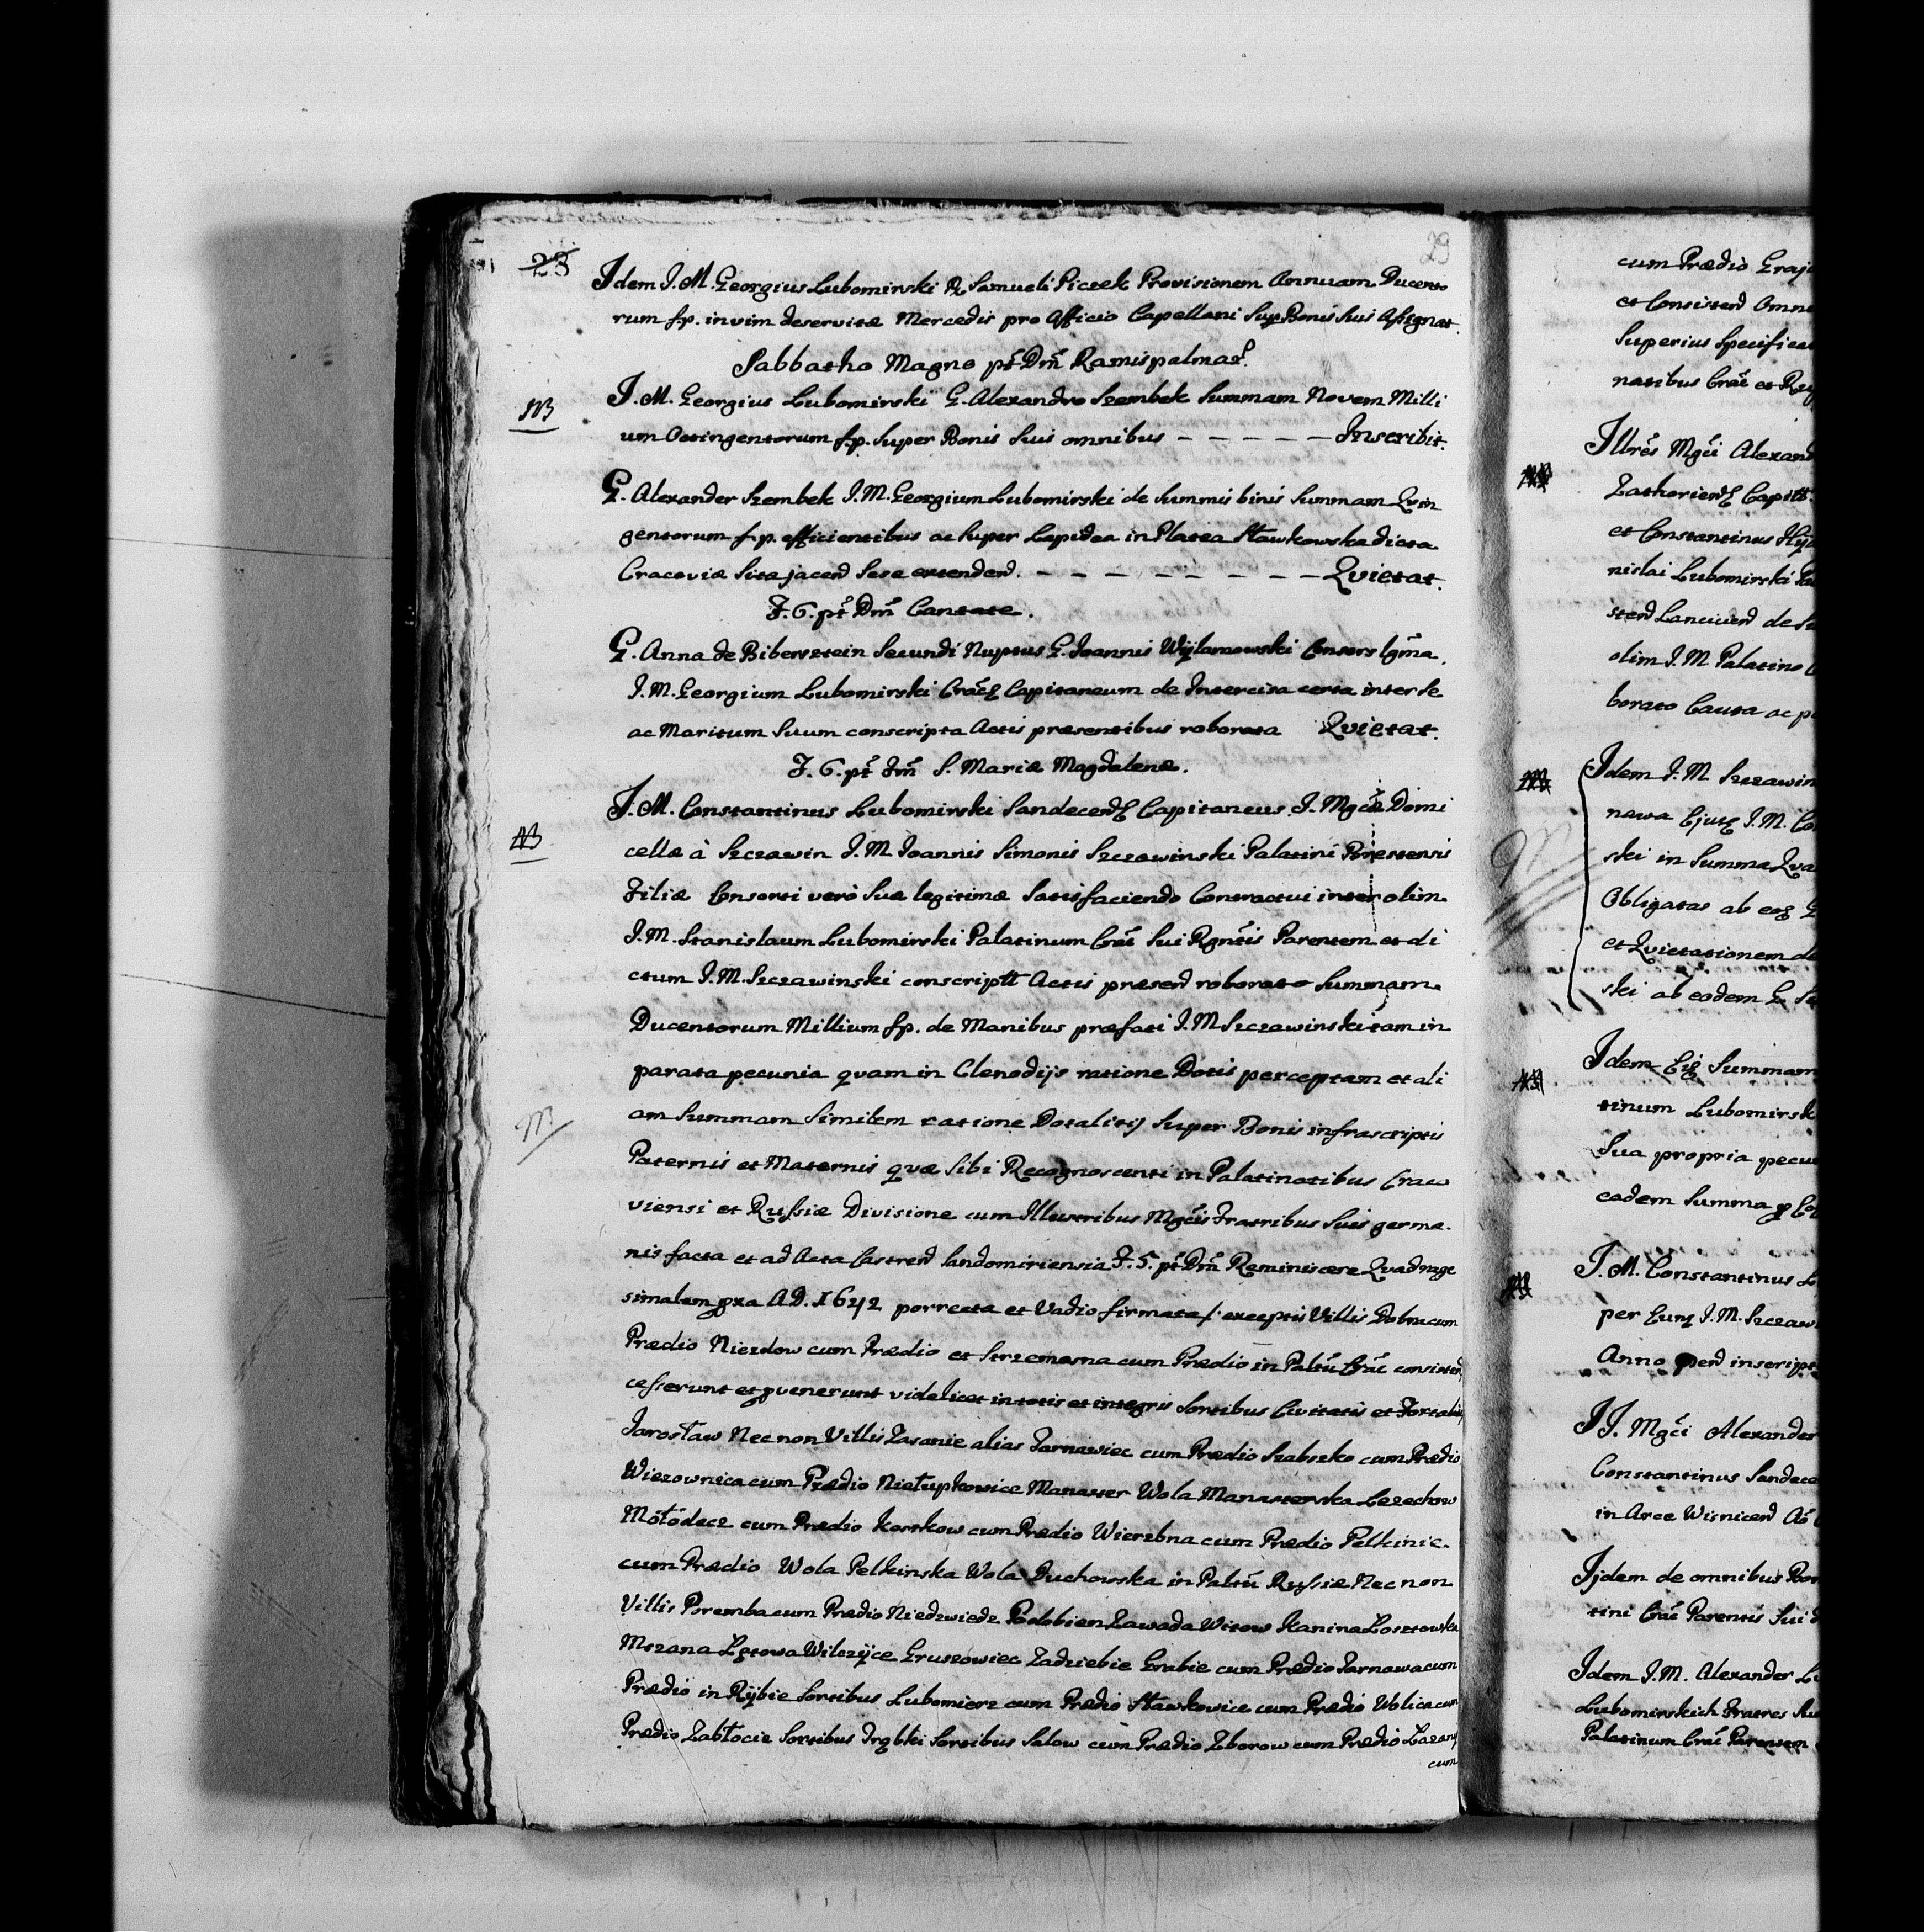 28
29
Idem I. M. Georgius Lubomirski R Samueli Piczek Provisionem Annuam Ducento
rum fp. in vim deservitæ Mercedis pro Officio Capellani Sup Bonis suis Assignat.
Sabbatho Magno pt Dm Ramispalmar.
NB
I. M. Georgius Lubomirski G. Alexandro Szembek Summam Novem Milli
um Octingentorum fp. Super Bonis Suis omnibus – – – – – Inscribit.
G. Alexander Szembek I. M. Georgium Lubomirski de Summis binis Summam Qvin
gentorum f. p. efficientibus ac super Lapidea in Platea Sławkowska dicta
Cracoviæ Sita jacend Sese extendend. – – – – – – – – Qvietat.
F. 6. pt Dm Cantate.
G. Anna de Biberstein Secundi Nuptus G. Joannis Wÿlamowski Consors lgma
I. M. Georgium Lubomirski Crac Capitaneum de Intercisa certa inter Se
ac Maritum Suum conscripta Actis præsentibus roborata Qvietat.
F. 6. pt Fm S. Mariæ Magdalenæ.
NB
I. M. Constantinus Lubomirski Sandecend Capitaneus I. Mgcæ Domi
cellæ à Szczawin I. M. Joannis Simonis Szczawinski Palatini Brestensis
Filiæ Consorti verò Suæ legitimæ Satisfaciendo Contractui inter olim
I. M. Stanislaum Lubomirski Palatinum Crac Sui Rgntis Parentem et di
ctum I. M. Szczawinski conscriptt Actis præsend roborato Summam
Ducentorum Millium fp. de Manibus præfati I. M Szczawinski tam in
parata pecunia qvam in Clenodijs ratione Dotis perceptam et ali
am Summam Similem ratione Dotalitij Super Bonis infrascriptis
Paternis et Maternis qvæ Sibi Recognoscenti in Palatinatibus Craco
viensi et Russiæ Divisione cum Illustribus Mgcis Fratribus Suis germa
nis facta et ad Acta Castrend Sandomiriensia F. 5. pt Dm Reminiscere Qvadrage
simalem pxa AD. 1642 porrecta et Vadio firmata /: exceptis Villis Dobra cum
Prædio Niezdow cum Prædio et Strzemesna cum Prædio in Paltu Crac consistend
cesserunt et pvenerunt videlicet in totis et integris Sortibus Civitatis et Fortalit
Jarosław Nec non Villis Zasanie alias Jarnawiec cum Prædio Szabszko cum Prædio
Wiezownica cum Prædio Niełupkowice Manaster Wola Manasterska Lezechow
Mołodecz cum Prædio Korskow cum Prædio Wierzbna cum Prædio Pelkinie
cum Prædio Wola Pelkinska Wola Duchowska in Paltu Russiæ Nec non
Villis Poremba cum Prædio Niedzwiedz Podobien Zawada Witow Kanina Łostowka
Mszana Łętowa Wilczÿce Gruszowiec Zadziebie Grabie cum Prædio Tarnawa cum
Prædio in Rÿbie Sortibus Lubomierz cum Prædio Sławkowice cum Prædio Wolica cum
Prædio Zabłocie Sortibus Trąbki Sortibus Sulow cum Prædio Zborow cum Prædio Lazany
cum
cum Prædio Graj
et Consistend Omn
Superius Specificat
natibus Crac et Ru
Illres Mgci Alexand
Zathoriend Capitt.
et Constantinus
nislai Lubomirski Pa
stend Lancuend de
olim I. M. Palatino C
borato Cauta ac p
Idem I. M Szczawin
nawa Ejus I. M. Co
ski in Summa Qva
Obligatas ab eo G
et Qvietationem de
ski ab eodem G. S
Idem Summam
tinum Lubomirsk
Sua propria pecu
eadem Summa p Co
I. M. Constantinus L
per Eum I. M. Szczaw
Anno pend inscript
I I. Mgci Alexander
Constantinus Sandec
in Arce Wisnicend Ao
Ijdem de omnibus Bon
tini Crac Parentis Sui
Idem I. M. Alexander L
Lubomirskich Fratres Su
Palatinum Crac Parentem